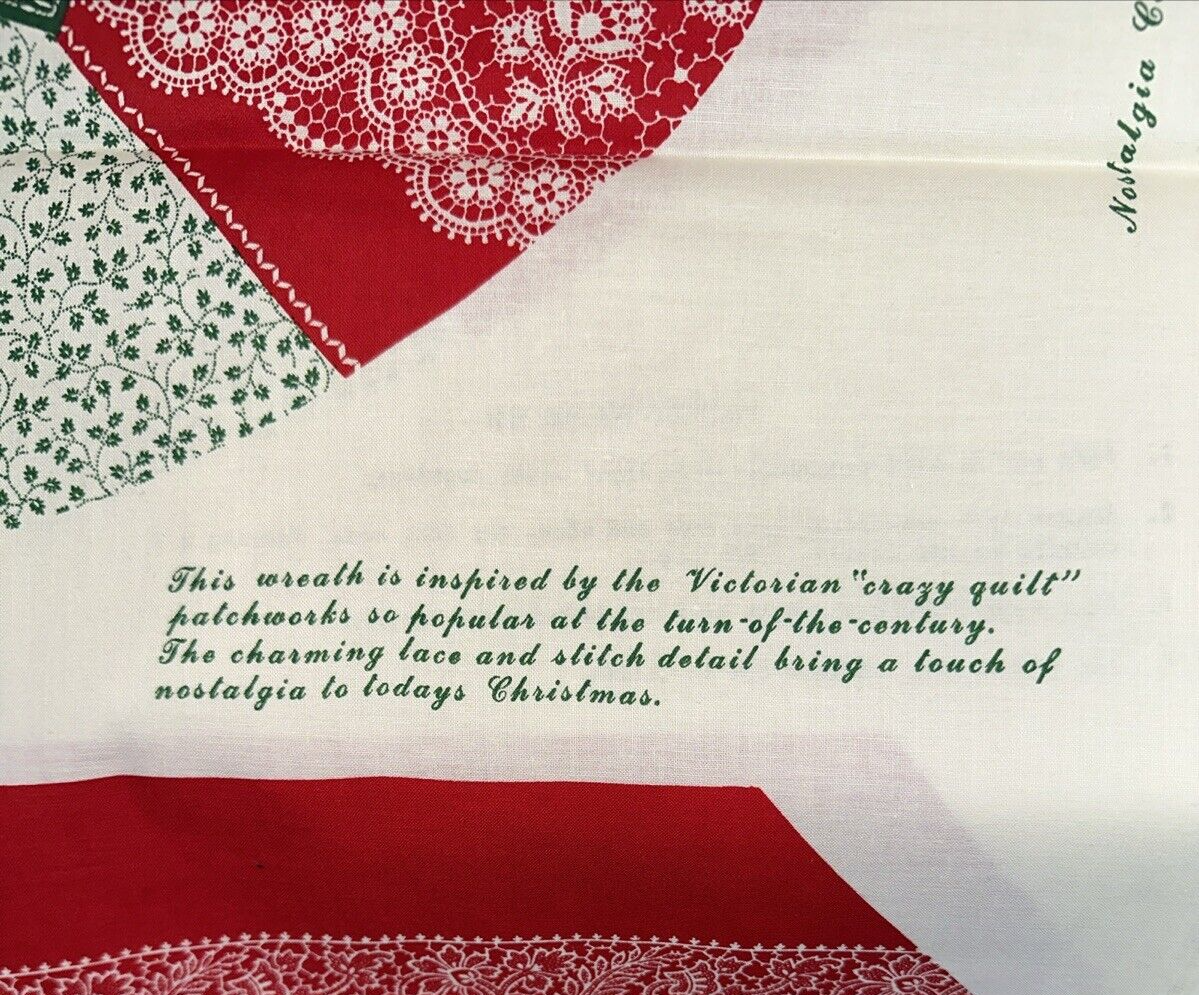 Nostalgia
This wreath is inspired by the Victorian "crazy quilt"
patchworks so popular at the turn-of-the-century.
The charming lace and stitch detail bring a touch of
nostalgia to todays Christmas.